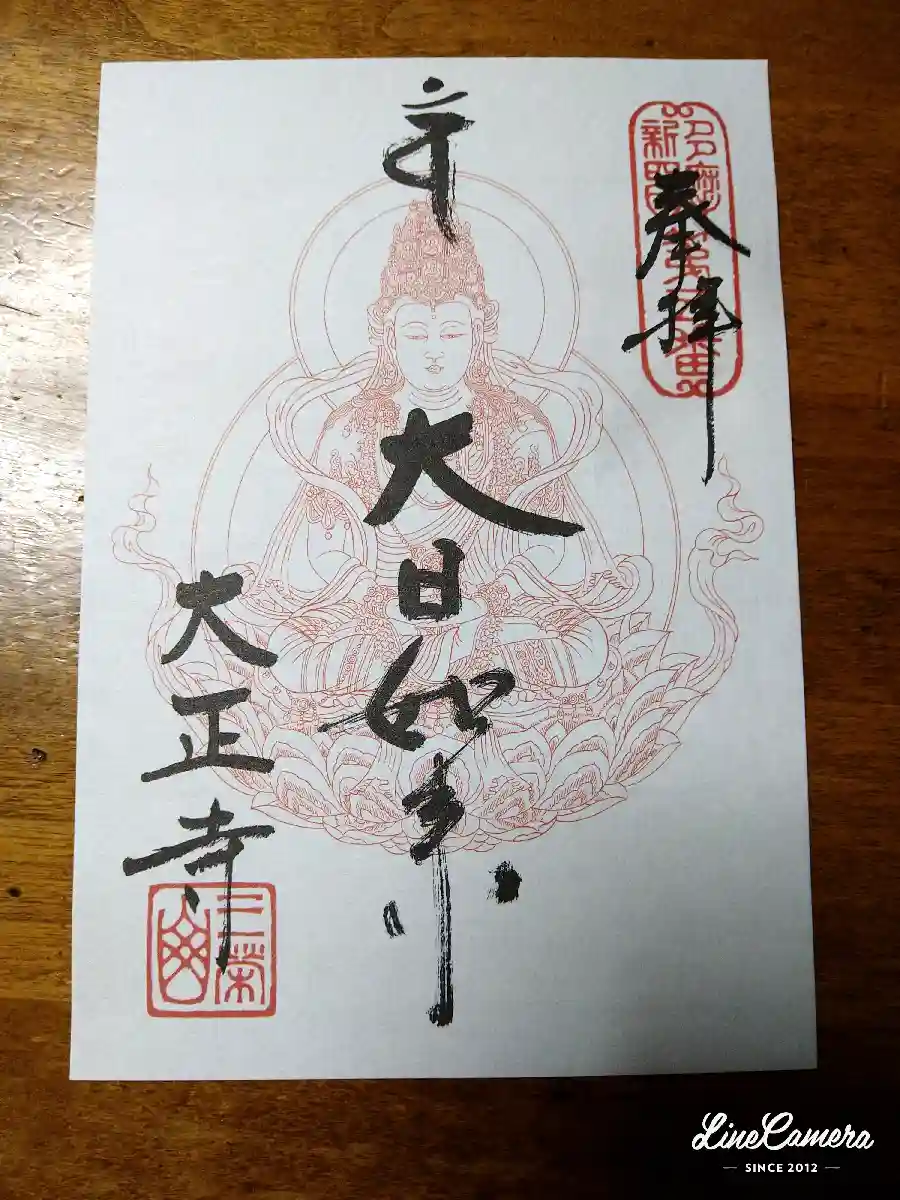 奉拝
大日如来
大正寺
三栄山
LineCamera
— SINCE 2012 —